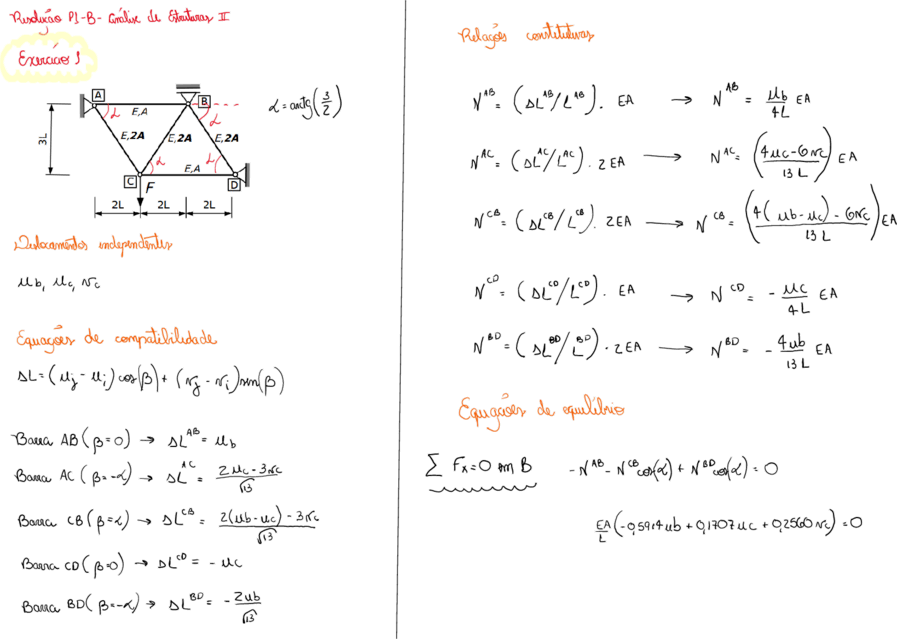 Resolução P1-B- Análise de Estruturas II
Exercício 1
A
B
E,A
α
α
α = arctg(3/2)
3L
E,2A
E,2A
E,2A
α
α
E,A
C
F
D
2L
2L
2L
Deslocamentos independentes
ub, uc, vc
Equações de compatibilidade
ΔL = (uj - ui) cos(β) + (vj - vi) sen(β)
Barra AB (β=0) → ΔL^AB = ub
Barra AC (β=-α) → ΔL^AC = (2uc - 3vc)/√13
Barra CB (β=α) → ΔL^CB = (2(ub - uc) - 3vc)/√13
Barra CD (β=0) → ΔL^CD = - uc
Barra BD (β=-α) → ΔL^BD = - 2ub/√13
Relações constitutivas
N^AB = (ΔL^AB/L^AB) . EA → N^AB = ub/4L EA
N^AC = (ΔL^AC/L^AC) . 2EA → N^AC = ((4uc - 6vc)/13L) EA
N^CB = (ΔL^CB/L^CB) . 2EA → N^CB = ((4(ub - uc) - 6vc)/13L) EA
N^CD = (ΔL^CD/L^CD) . EA → N^CD = - uc/4L EA
N^BD = (ΔL^BD/L^BD) . 2EA → N^BD = - 4ub/13L EA
Equações de equilíbrio
∑ Fx = 0 em B
-N^AB - N^CB cos(α) + N^BD cos(α) = 0
EA/L (-0,5914ub + 0,1707uc + 0,2560vc) = 0